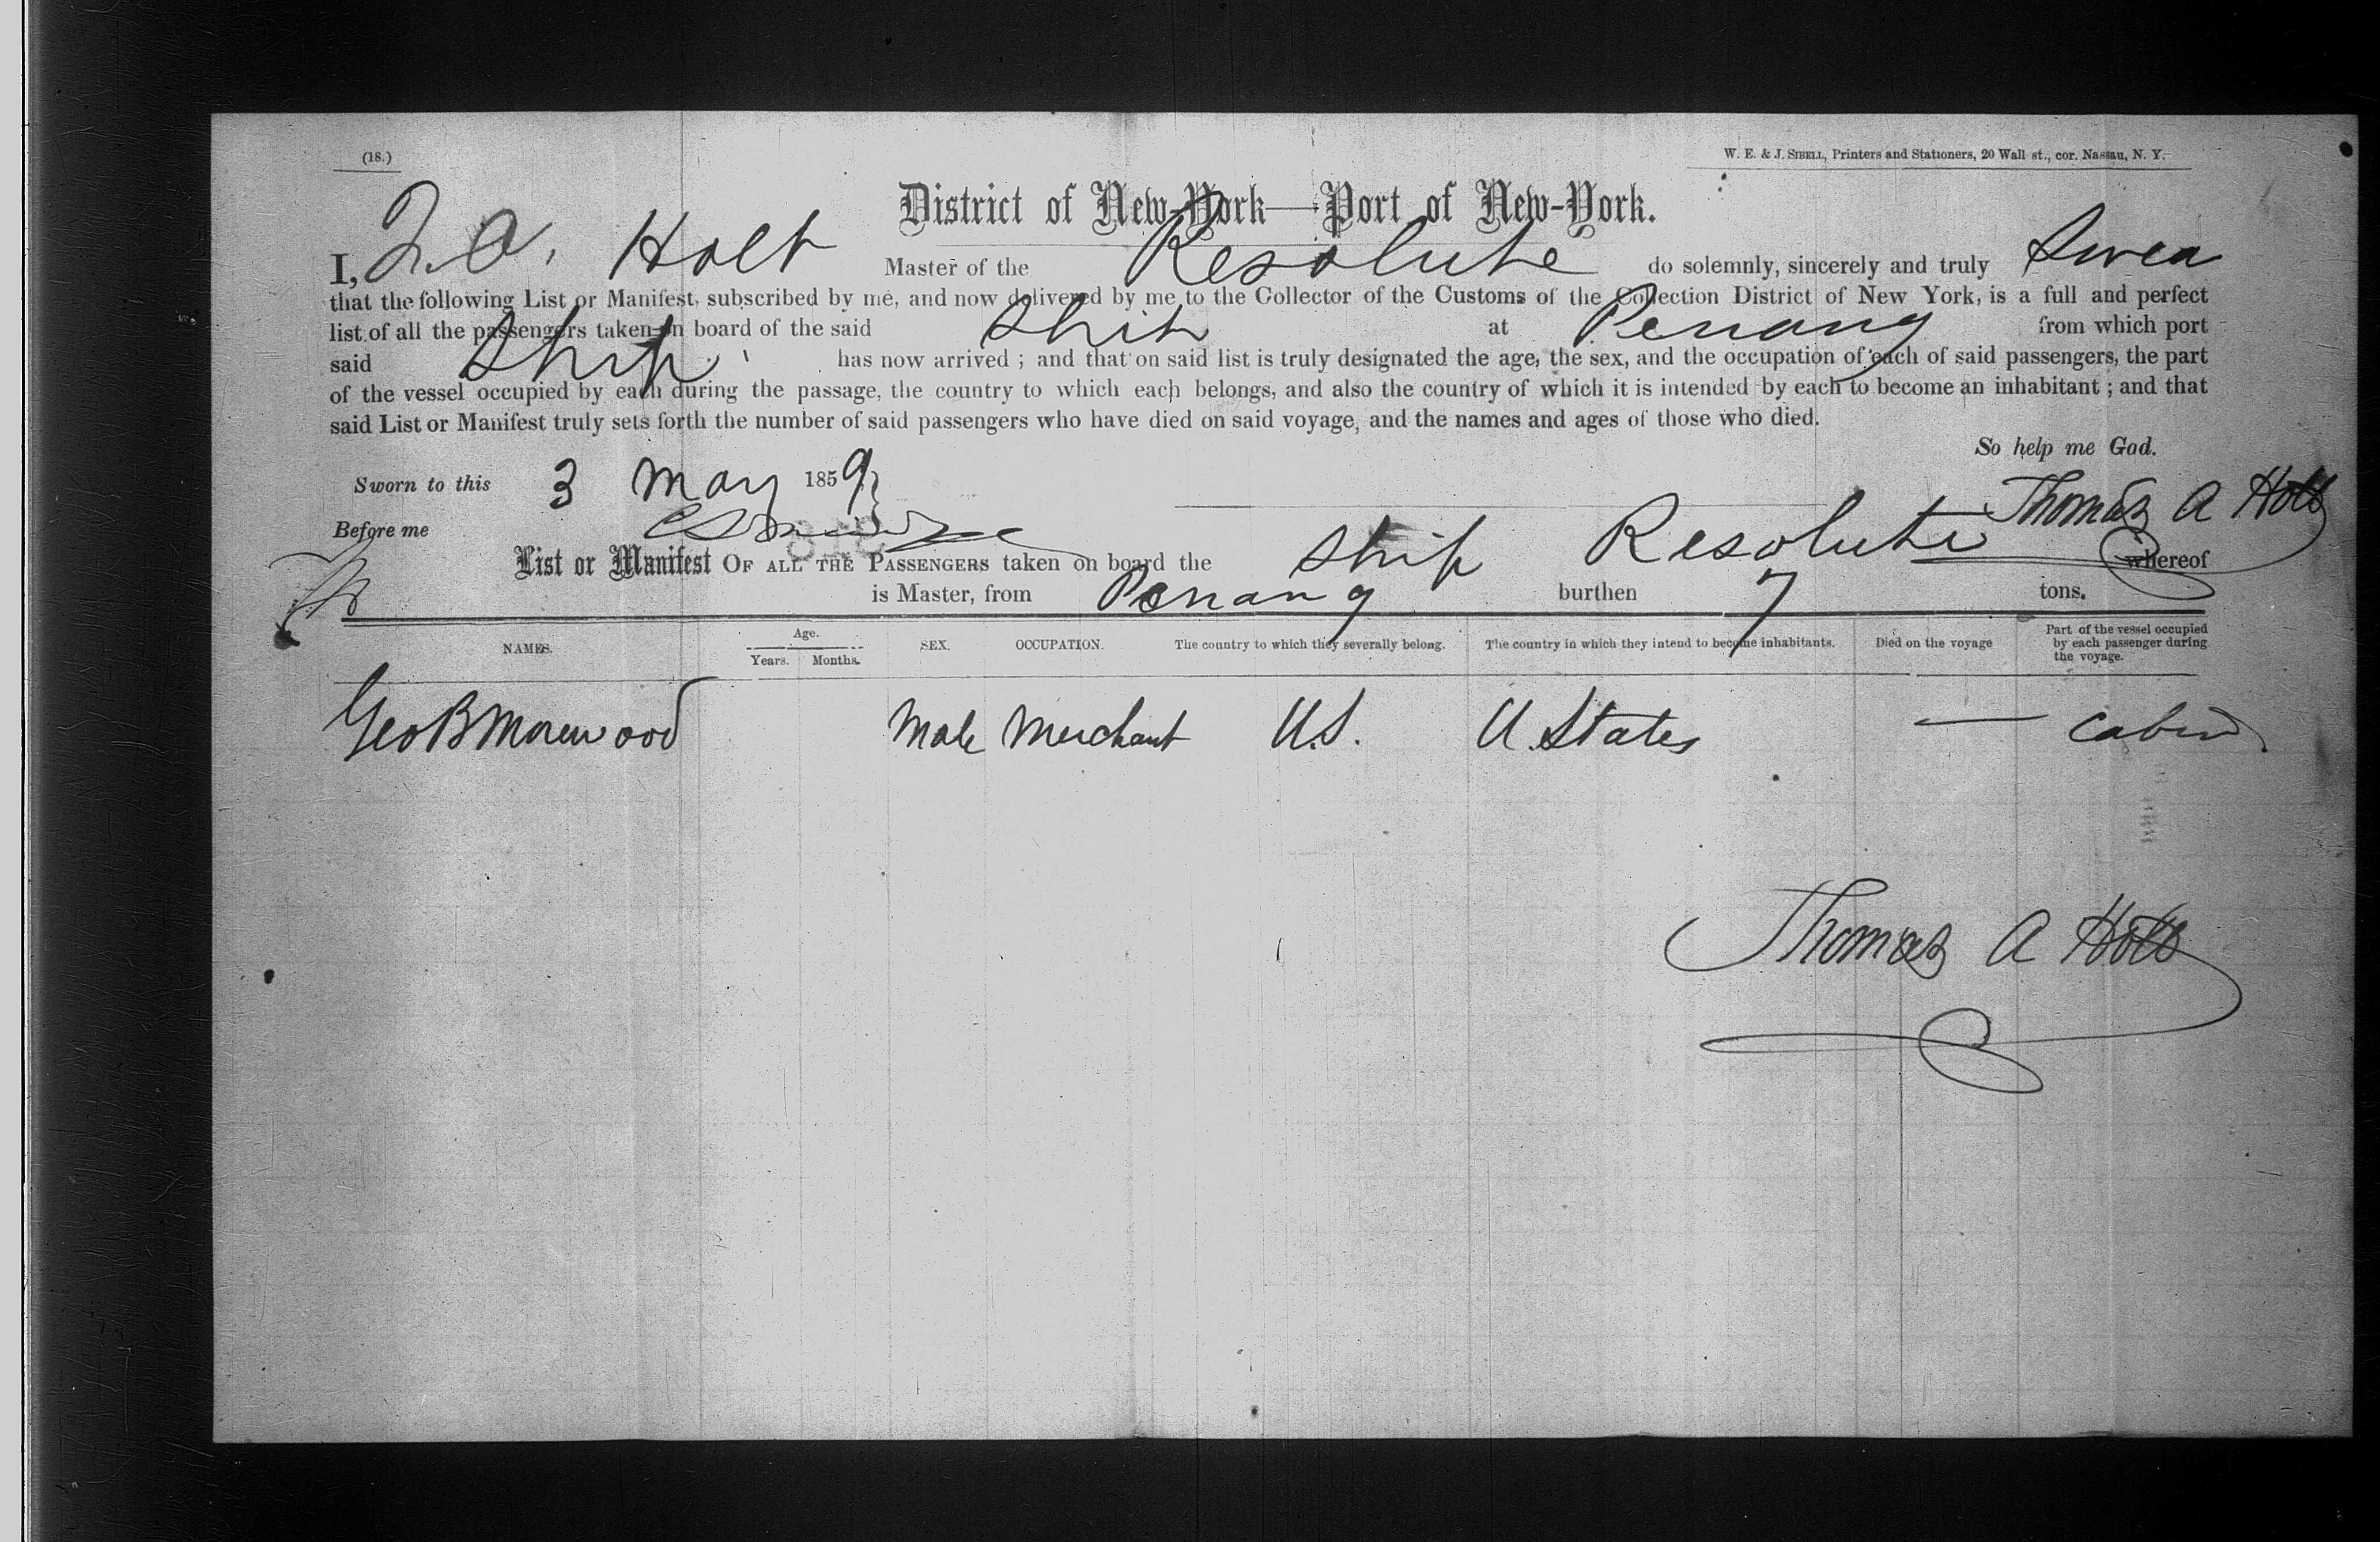 (18.)
W. E. & J. SIBELL, Printers and Stationers, 20 Wall st., cor. Nassau, N. Y.
District of New-York—Port of New-York.
I, T. A. Holt Master of the Resolute do solemnly, sincerely and truly Swear
that the following List or Manifest, subscribed by me, and now delivered by me to the Collector of the Customs of the Collection District of New York, is a full and perfect
list of all the passengers taken on board of the said Ship at Penang from which port
said Ship has now arrived ; and that on said list is truly designated the age, the sex, and the occupation of each of said passengers, the part
of the vessel occupied by each during the passage, the country to which each belongs, and also the country of which it is intended by each to become an inhabitant ; and that
said List or Manifest truly sets forth the number of said passengers who have died on said voyage, and the names and ages of those who died.
So help me God.
Sworn to this 3 May 1859 Thomas A Holt
Before me
List or Manifest OF ALL THE PASSENGERS taken on board the Ship Resolute whereof
is Master, from Penang burthen tons.
NAMES. Age. Years. Months. SEX. OCCUPATION. The country to which they severally belong. The country in which they intend to become inhabitants. Died on the voyage Part of the vessel occupied by each passenger during the voyage.
Geo B Morewood Male Merchant U.S. U. States — Cabin
Thomas A Holt